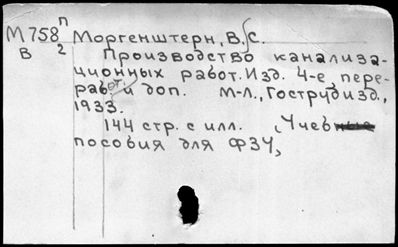 М758 п Моргенштерн, В. С.
В 2 Производство канализа-
ционных работ. Изд. 4-е, пере-
раб. и доп. М-Л., Гострудизд.,
1933.
144 стр. с илл. (Учебные
пособия для ФЗУ,